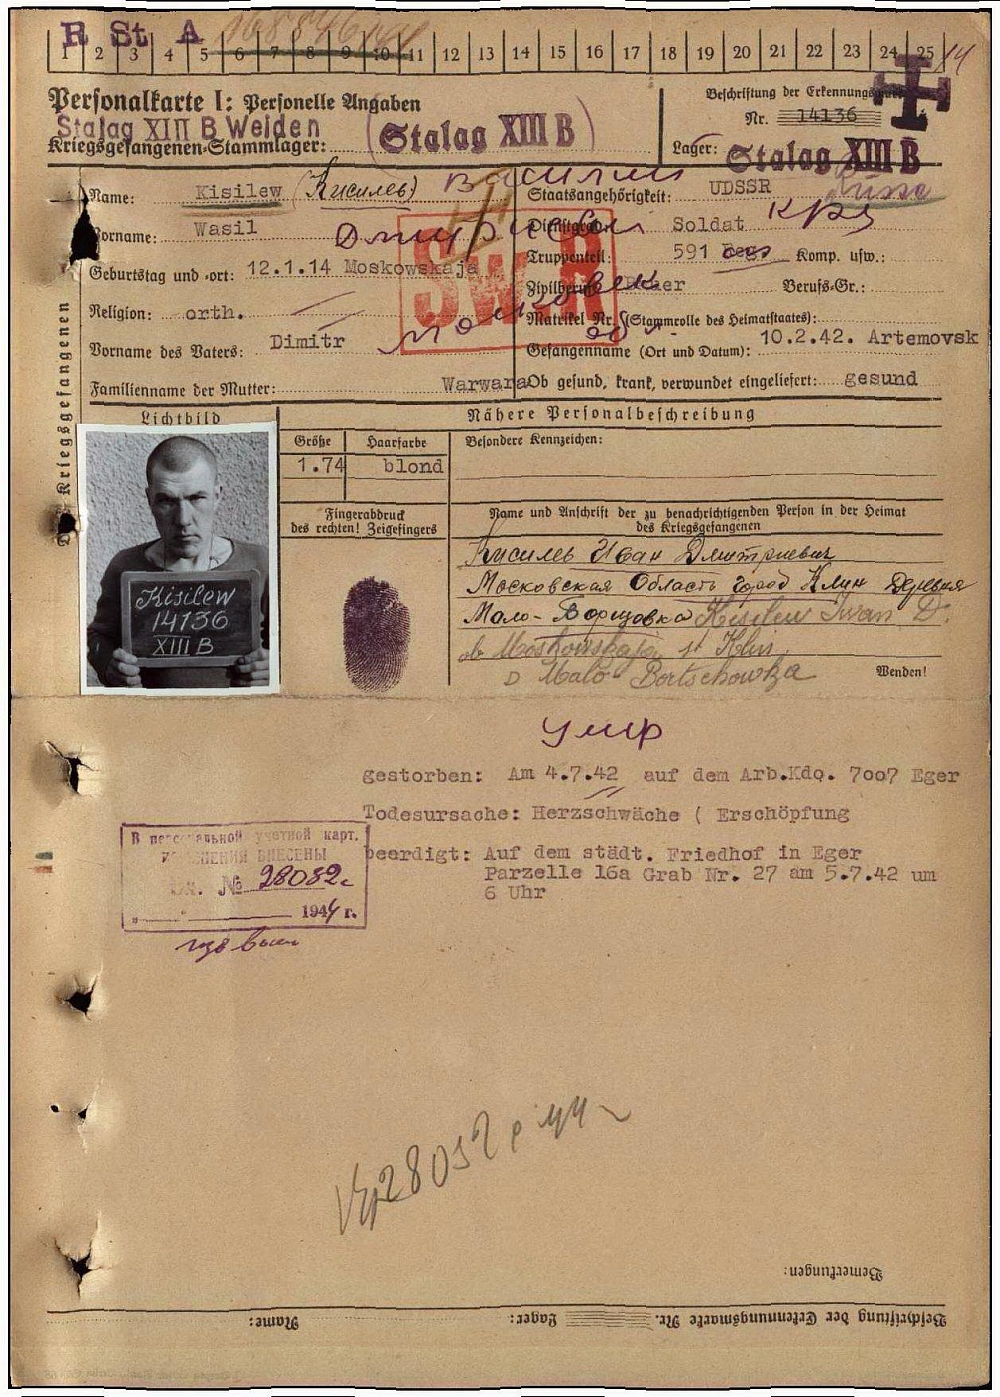 R St A
1 2 3 4 5 6 7 8 9 10 11 12 13 14 15 16 17 18 19 20 21 22 23 24 25
Personalkarte I: Personelle Angaben
Stalag XIII B Weiden
Kriegsgefangenen-Stammlager: Stalag XIII B
Beschriftung der Erkennungsmarke
Nr. 14136
Lager: Stalag XIII B
Russe
Name: Kisilew (Кисилев)
Василий
Vorname: Wasil
Дмитриевич
Geburtstag und -ort: 12.1.14 Moskowskaja
Religion: orth.
Московская
обл-
Vorname des Vaters: Dimitr
Familienname der Mutter: Warwara
SwR
Staatsangehörigkeit: UDSSR
Dienstgrad: Soldat кр
Truppenteil: 591 Komp. usw.:
Zivilberuf: Berufs-Gr.:
Matrikel Nr. (Stammrolle des Heimatstaates):
Gefangenname (Ort und Datum): 10.2.42. Artemovsk
Ob gesund, krank, verwundet eingeliefert: gesund
des Kriegsgefangenen
Lichtbild
Nähere Personalbeschreibung
Größe Haarfarbe Besondere Kennzeichen:
1.74 blond
Fingerabdruck
des rechten! Zeigefingers
Name und Anschrift der zu benachrichtigenden Person in der Heimat
des Kriegsgefangenen
Кисилев Иван Дмитриевич
Московская Область город Клин Деревня
Мало-Борщовка Kisilew Iwan D.
ob Moskowskaja st Klin,
D Malo Bortschowka
Wenden!
Kisilew
14136
XIII B
умер
gestorben: Am 4.7.42 auf dem Arb.Kdo. 7007 Eger
Todesursache: Herzschwäche ( Erschöpfung
beerdigt: Auf dem städt. Friedhof in Eger
Parzelle 16a Grab Nr. 27 am 5.7.42 um
6 Uhr
В персональной учетной карт.
ИЗМЕНЕНИЯ ВНЕСЕНЫ
Вх. № 28082с
1944 г.
Bemerkungen:
Name: Lager: Beschriftung der Erkennungsmarke Nr.